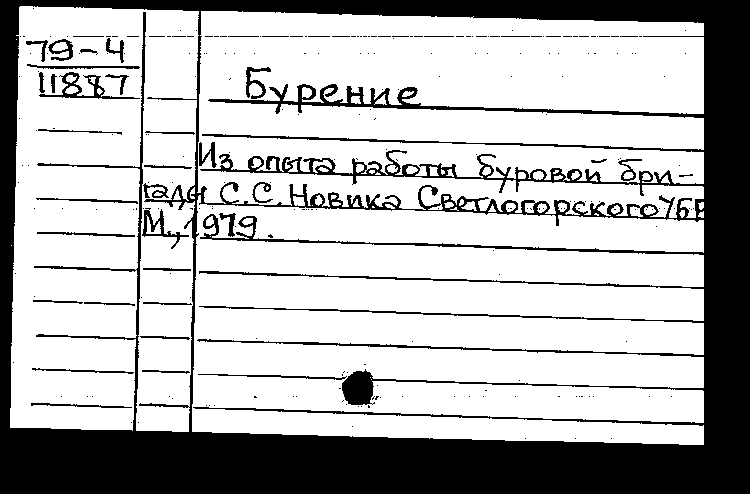 79-4
11887
Бурение
Из опыта работы буровой бри-
гады С.С. Новика Светлогорского УБР
М., 1979.